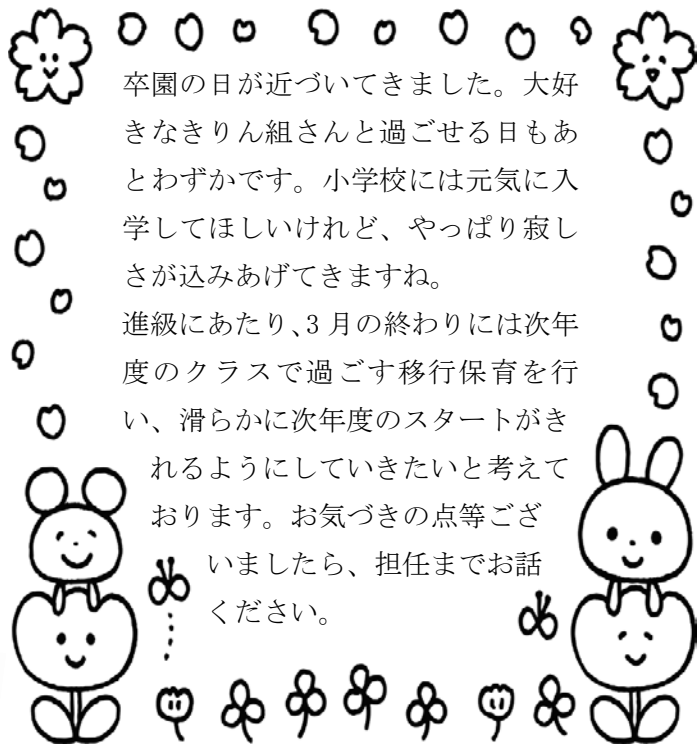 卒園の日が近づいてきました。大好
きなきりん組さんと過ごせる日もあ
とわずかです。小学校には元気に入
学してほしいけれど、やっぱり寂し
さが込みあげてきますね。
進級にあたり、3 月の終わりには次年
度のクラスで過ごす移行保育を行
い、滑らかに次年度のスタートがき
れるようにしていきたいと考えて
おります。お気づきの点等ござ
いましたら、担任までお話
ください。